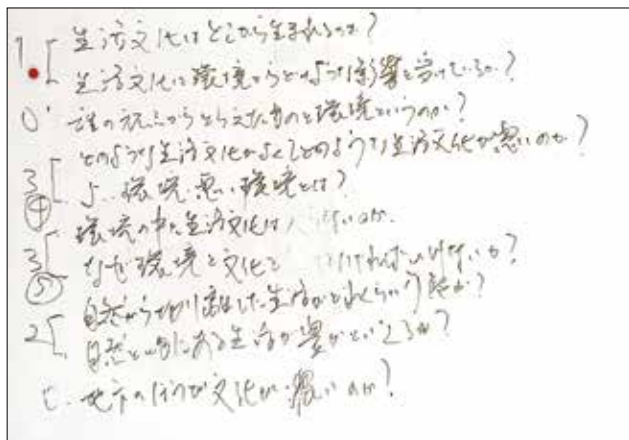 1. 生活文化はどこから生まれるのか?
生活文化は環境からどのような影響を受けているか?
0' 誰の視点からとらえたものを環境というのか?
どのような生活文化がよくどのような生活文化が悪いのか?
3 環境 悪い環境とは?
④ 環境の中に生活文化は
3 なぜ環境と文化と なければいけないか?
⑤ 自然から切り離した生活が
2 自然と共にある生活が豊かといえるか?
地方のほうが文化が